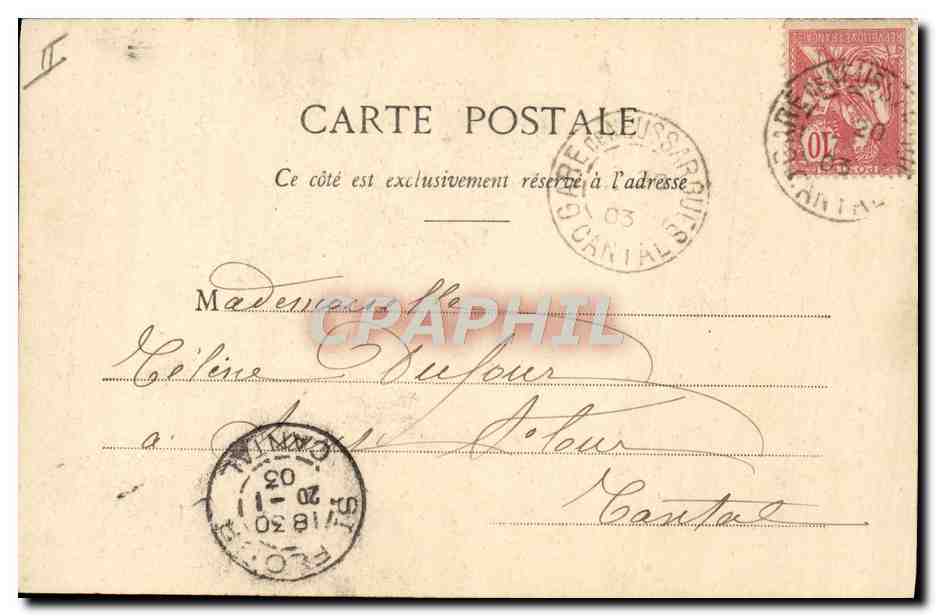 II
RÉPUBLIQUE FRANÇAISE
10
POSTES
GARE DE NEUSSARGUES
20
03
CANTAL
CARTE POSTALE
Ce côté est exclusivement réservé à l'adresse
GARE DE NEUSSARGUES
03
CANTAL
Mademoiselle
CPAPHIL
Céline Dufour
à St Flour
Cantal
ST FLOUR
18 30
20 - 1
03
CANTAL